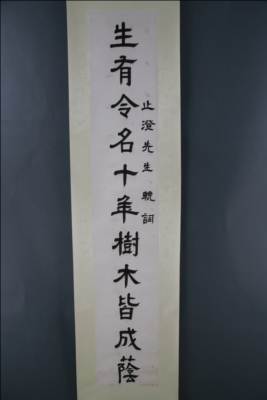 止澄先生輓詞
生有令名十年樹木皆成蔭